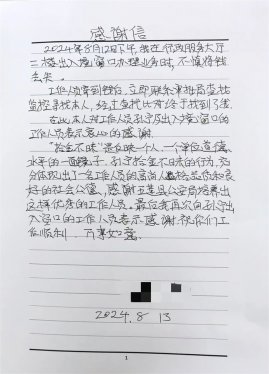 感谢信
2024年8月12日下午，我在行政服务大厅
二楼出入境窗口办理业务时，不慎将钱
丢失。
工作人员拾到钱后，立即联系审批局查找
监控寻找本人，经过查找比对终于找到了我
在此本人对工作人员孙宇及出入境窗口的
工作人员表示衷心的感谢
"拾金不昧"是反映一个人，一个单位道德
水平的一面镜子。孙宇拾金不昧的行为，充
分体现出了一名工作人员的高尚人格品质和良
好的社会公德，感谢县公安局培养出
这样优秀的工作人员。最后我再次向孙宇出
入境口的工作人员表示感谢，祝你们工
作顺利，万事如意。
2024.8 13
1